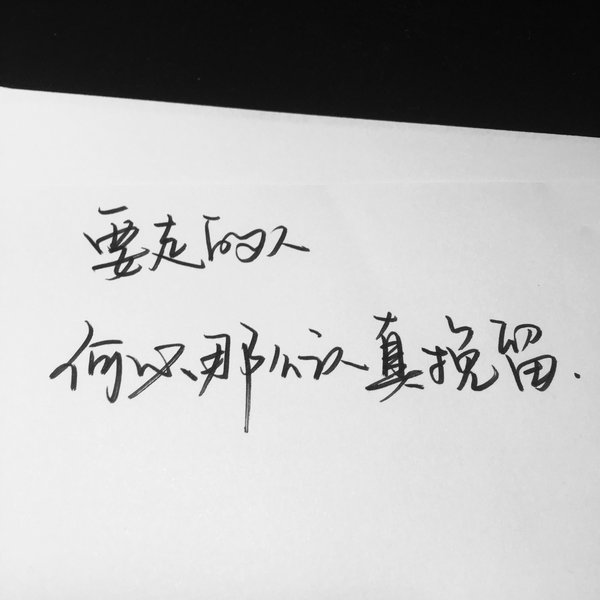 要走的人
何必那么认真挽留.